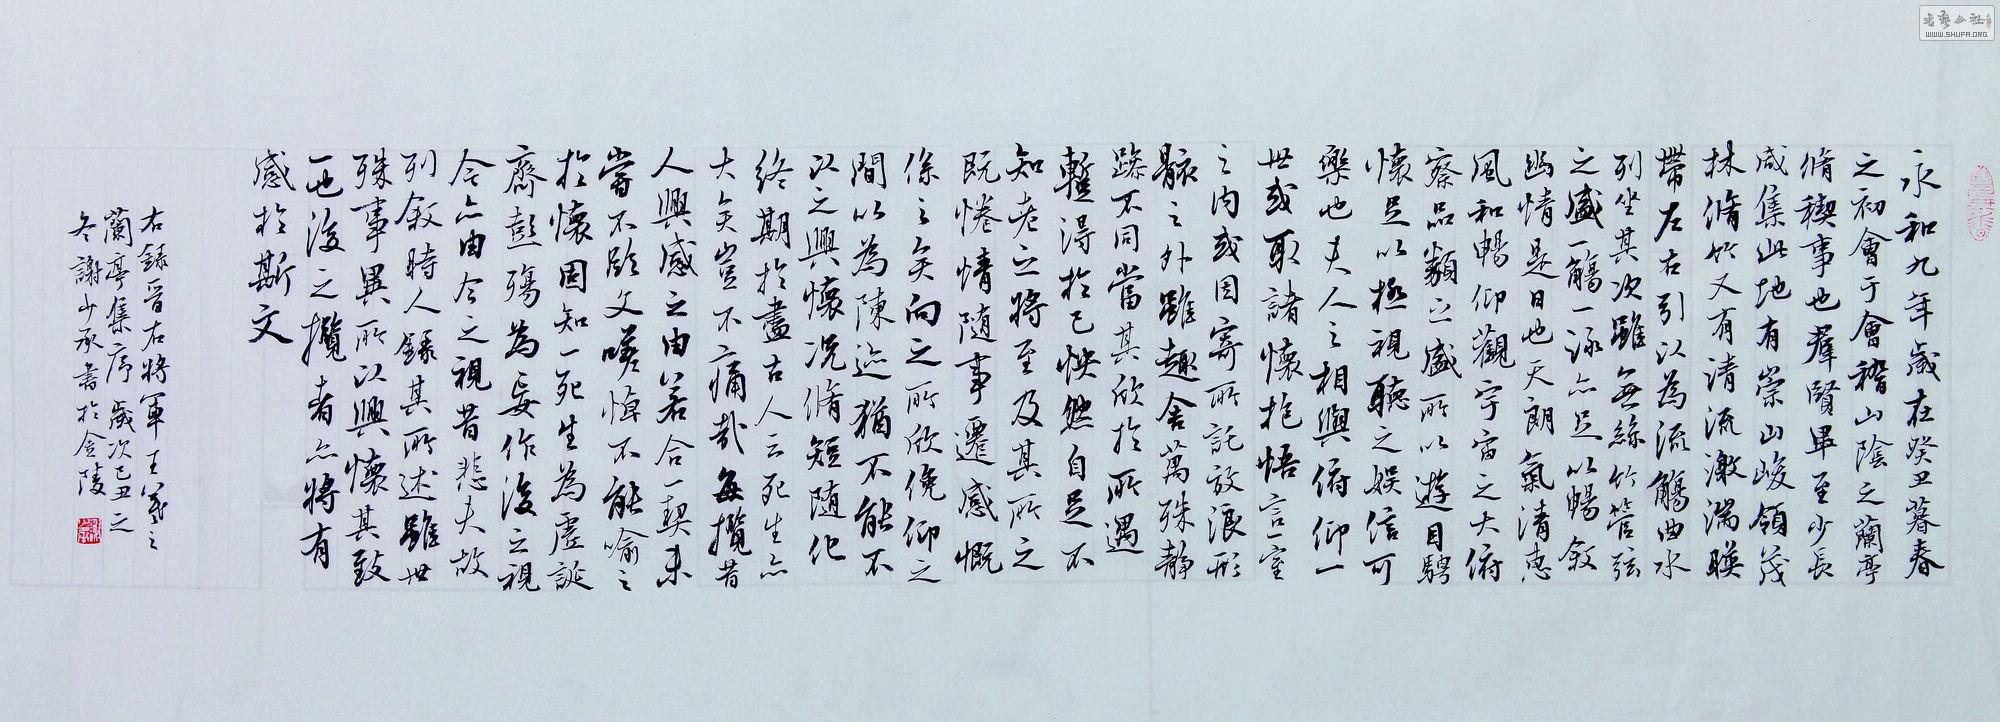 永和九年歲在癸丑暮春
之初會于會稽山陰之蘭亭
脩稧事也羣賢畢至少長
咸集此地有崇山峻領茂
林脩竹又有清流激湍暎
帶左右引以為流觴曲水
列坐其次雖無絲竹管弦
之盛一觴一詠亦足以暢敘
幽情是日也天朗氣清惠
風和暢仰觀宇宙之大俯
察品類之盛所以遊目騁
懷足以極視聽之娛信可
樂也夫人之相與俯仰一
世或取諸懷抱悟言一室
之內或因寄所託放浪形
骸之外雖趣舍萬殊靜
躁不同當其欣於所遇
暫得於己怏然自足不
知老之將至及其所之
既惓情隨事遷感慨
係之矣向之所欣俛仰之
間以為陳迹猶不能不
以之興懷況脩短隨化
終期於盡古人云死生亦
大矣豈不痛哉每攬昔
人興感之由若合一契未
嘗不臨文嗟悼不能喻之
於懷固知一死生為虛誕
齊彭殤為妄作後之視
今亦由今之視昔悲夫故
列敘時人錄其所述雖世
殊事異所以興懷其致
一也後之攬者亦將有
感於斯文
右錄晉右將軍王羲之
蘭亭集序歲次己丑之
冬謝少承書於金陵
書藝公社
WWW.SHUFA.ORG